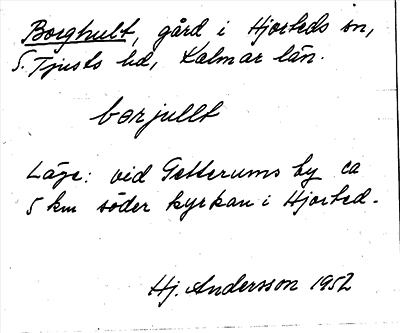 Borghult, gård i Hjorteds sn,
S. Tjusts hd, Kalmar län.
borjullt
Läge: vid Getterums by ca
5 km söder kyrkan i Hjorted.
Hj. Andersson 1952